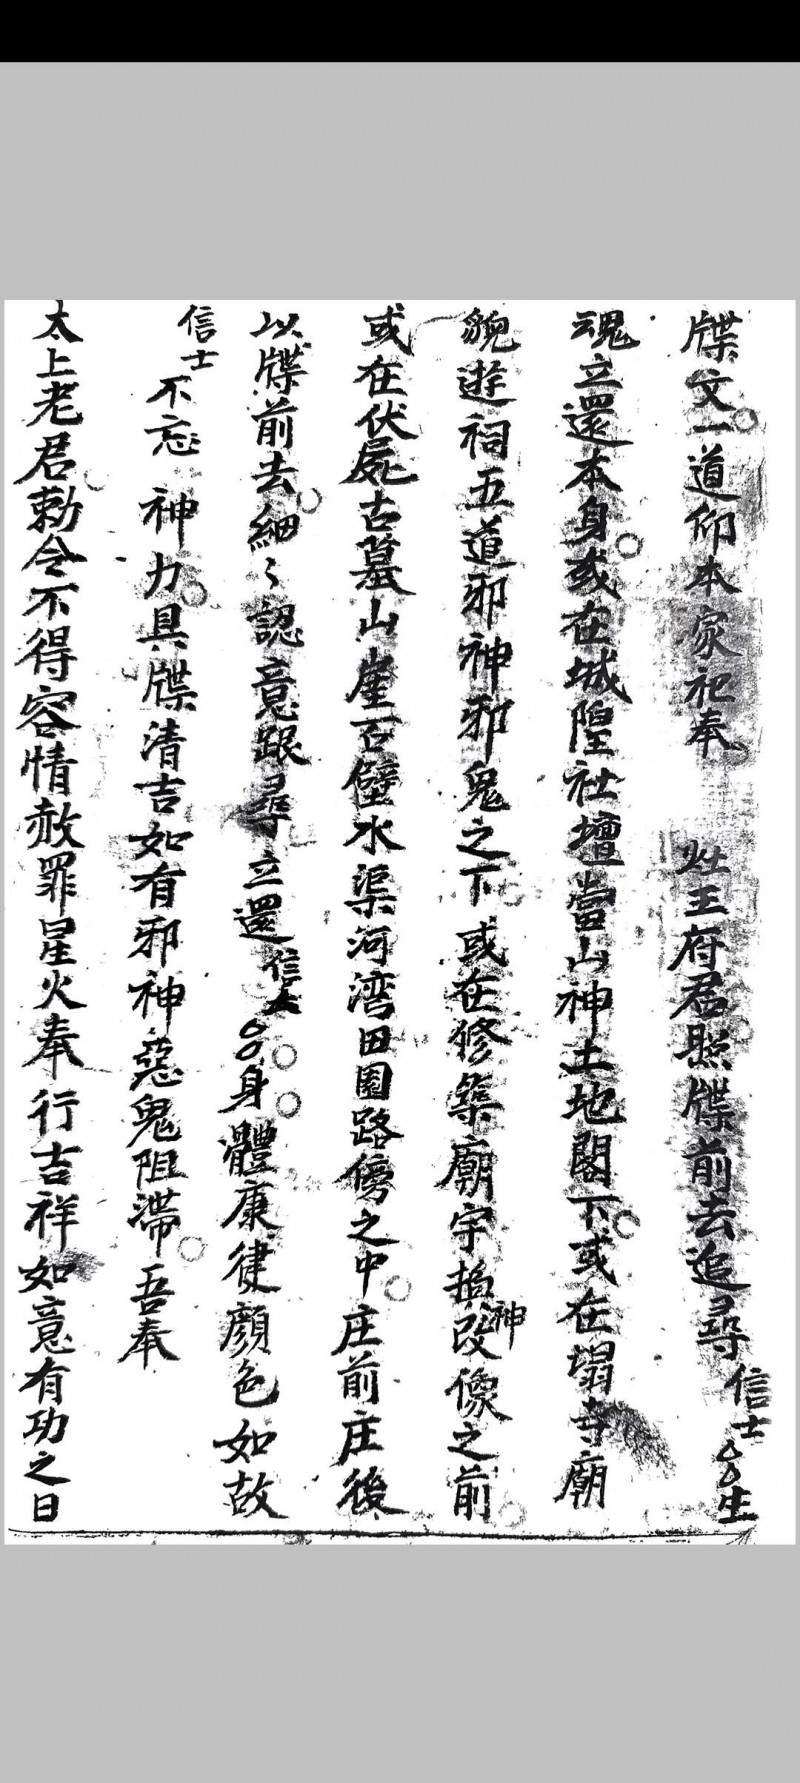 牒文一道仰本家祀奉　灶王府君照牒前去追尋信士〇〇生
魂立還本身或在城隍社壇當山神土地閣下或在塌寺廟
貌遊祠五道邪神邪鬼之下或在修築廟宇損改神像之前
或在伏屍古墓山崖石壁水渠河湾田園路傍之中庄前庄後
以牒前去細〻認意跟尋立還信士〇〇身體康健顏色如故
信士不忘　神力具牒清吉如有邪神惡鬼阻滯吾奉
太上老君勅令不得容情赦罪星火奉行吉祥如意有功之日